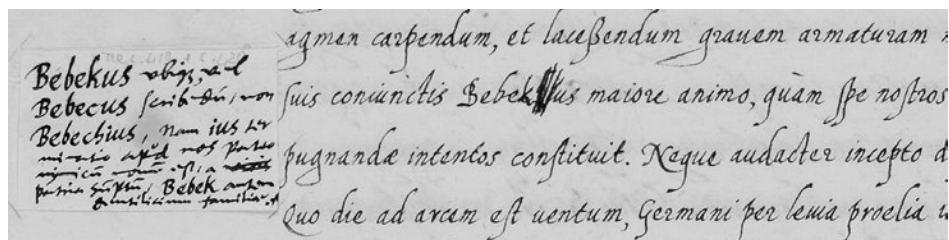 Bebekus ubiq; vel
Bebecus scribendū, non
Bebechius, Nam ius ter
minatio apud nos patro
nymicū nomē est, a
patria sumptū, Bebek autem
gentilicium familiae
agmen carpendum, et laceßendum grauem armaturam
suis coniunctis Bebekus maiore animo, quàm spe nostros
pugnandæ intentos constituit. Neque audacter incepto
Quo die ad arcem est uentum, Germani per leuia proelia